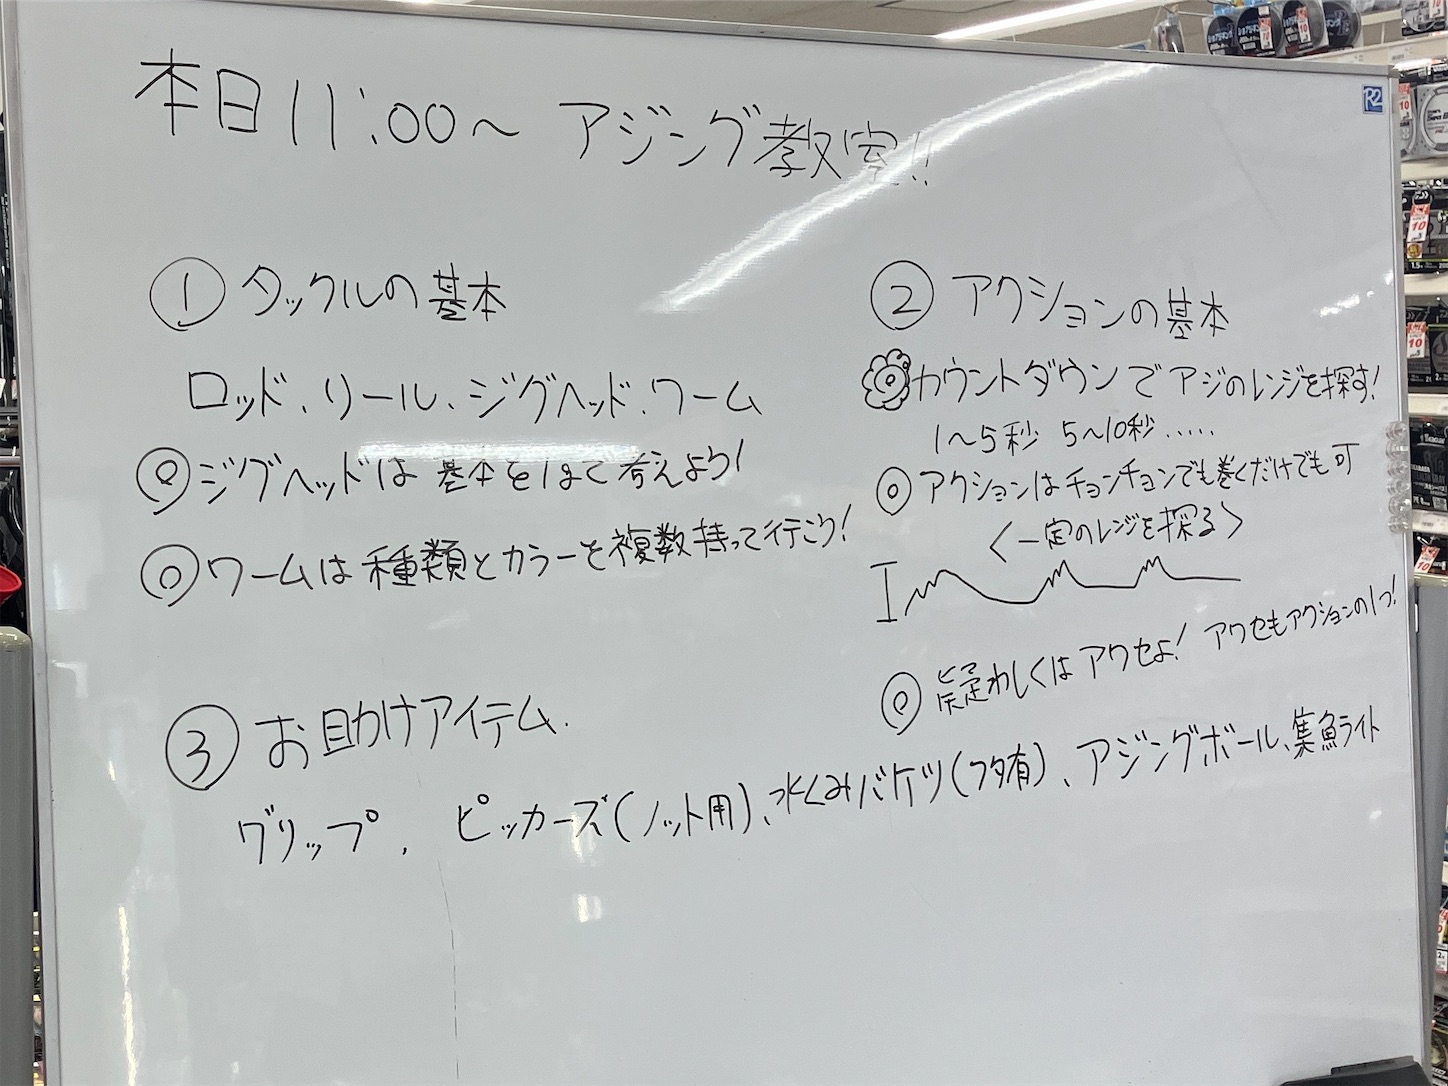 本日11:00〜 アジング教室!!
① タックルの基本
ロッド、リール、ジグヘッド、ワーム
◎ジグヘッドは基本を1gで考えよう!
◎ワームは種類とカラーを複数持って行こう!
② アクションの基本
◎カウントダウンでアジのレンジを探す!
1〜5秒 5〜10秒.....
◎アクションはチョンチョンでも巻くだけでも可
〈一定のレンジを探る〉
◎疑わしくはアワセよ! アワセもアクションの1つ!
③ お助けアイテム.
グリップ、ピッカーズ(ノット用)、水くみバケツ(フタ有)、アジングボール、集魚ライト
R2
10
10
10
10
10